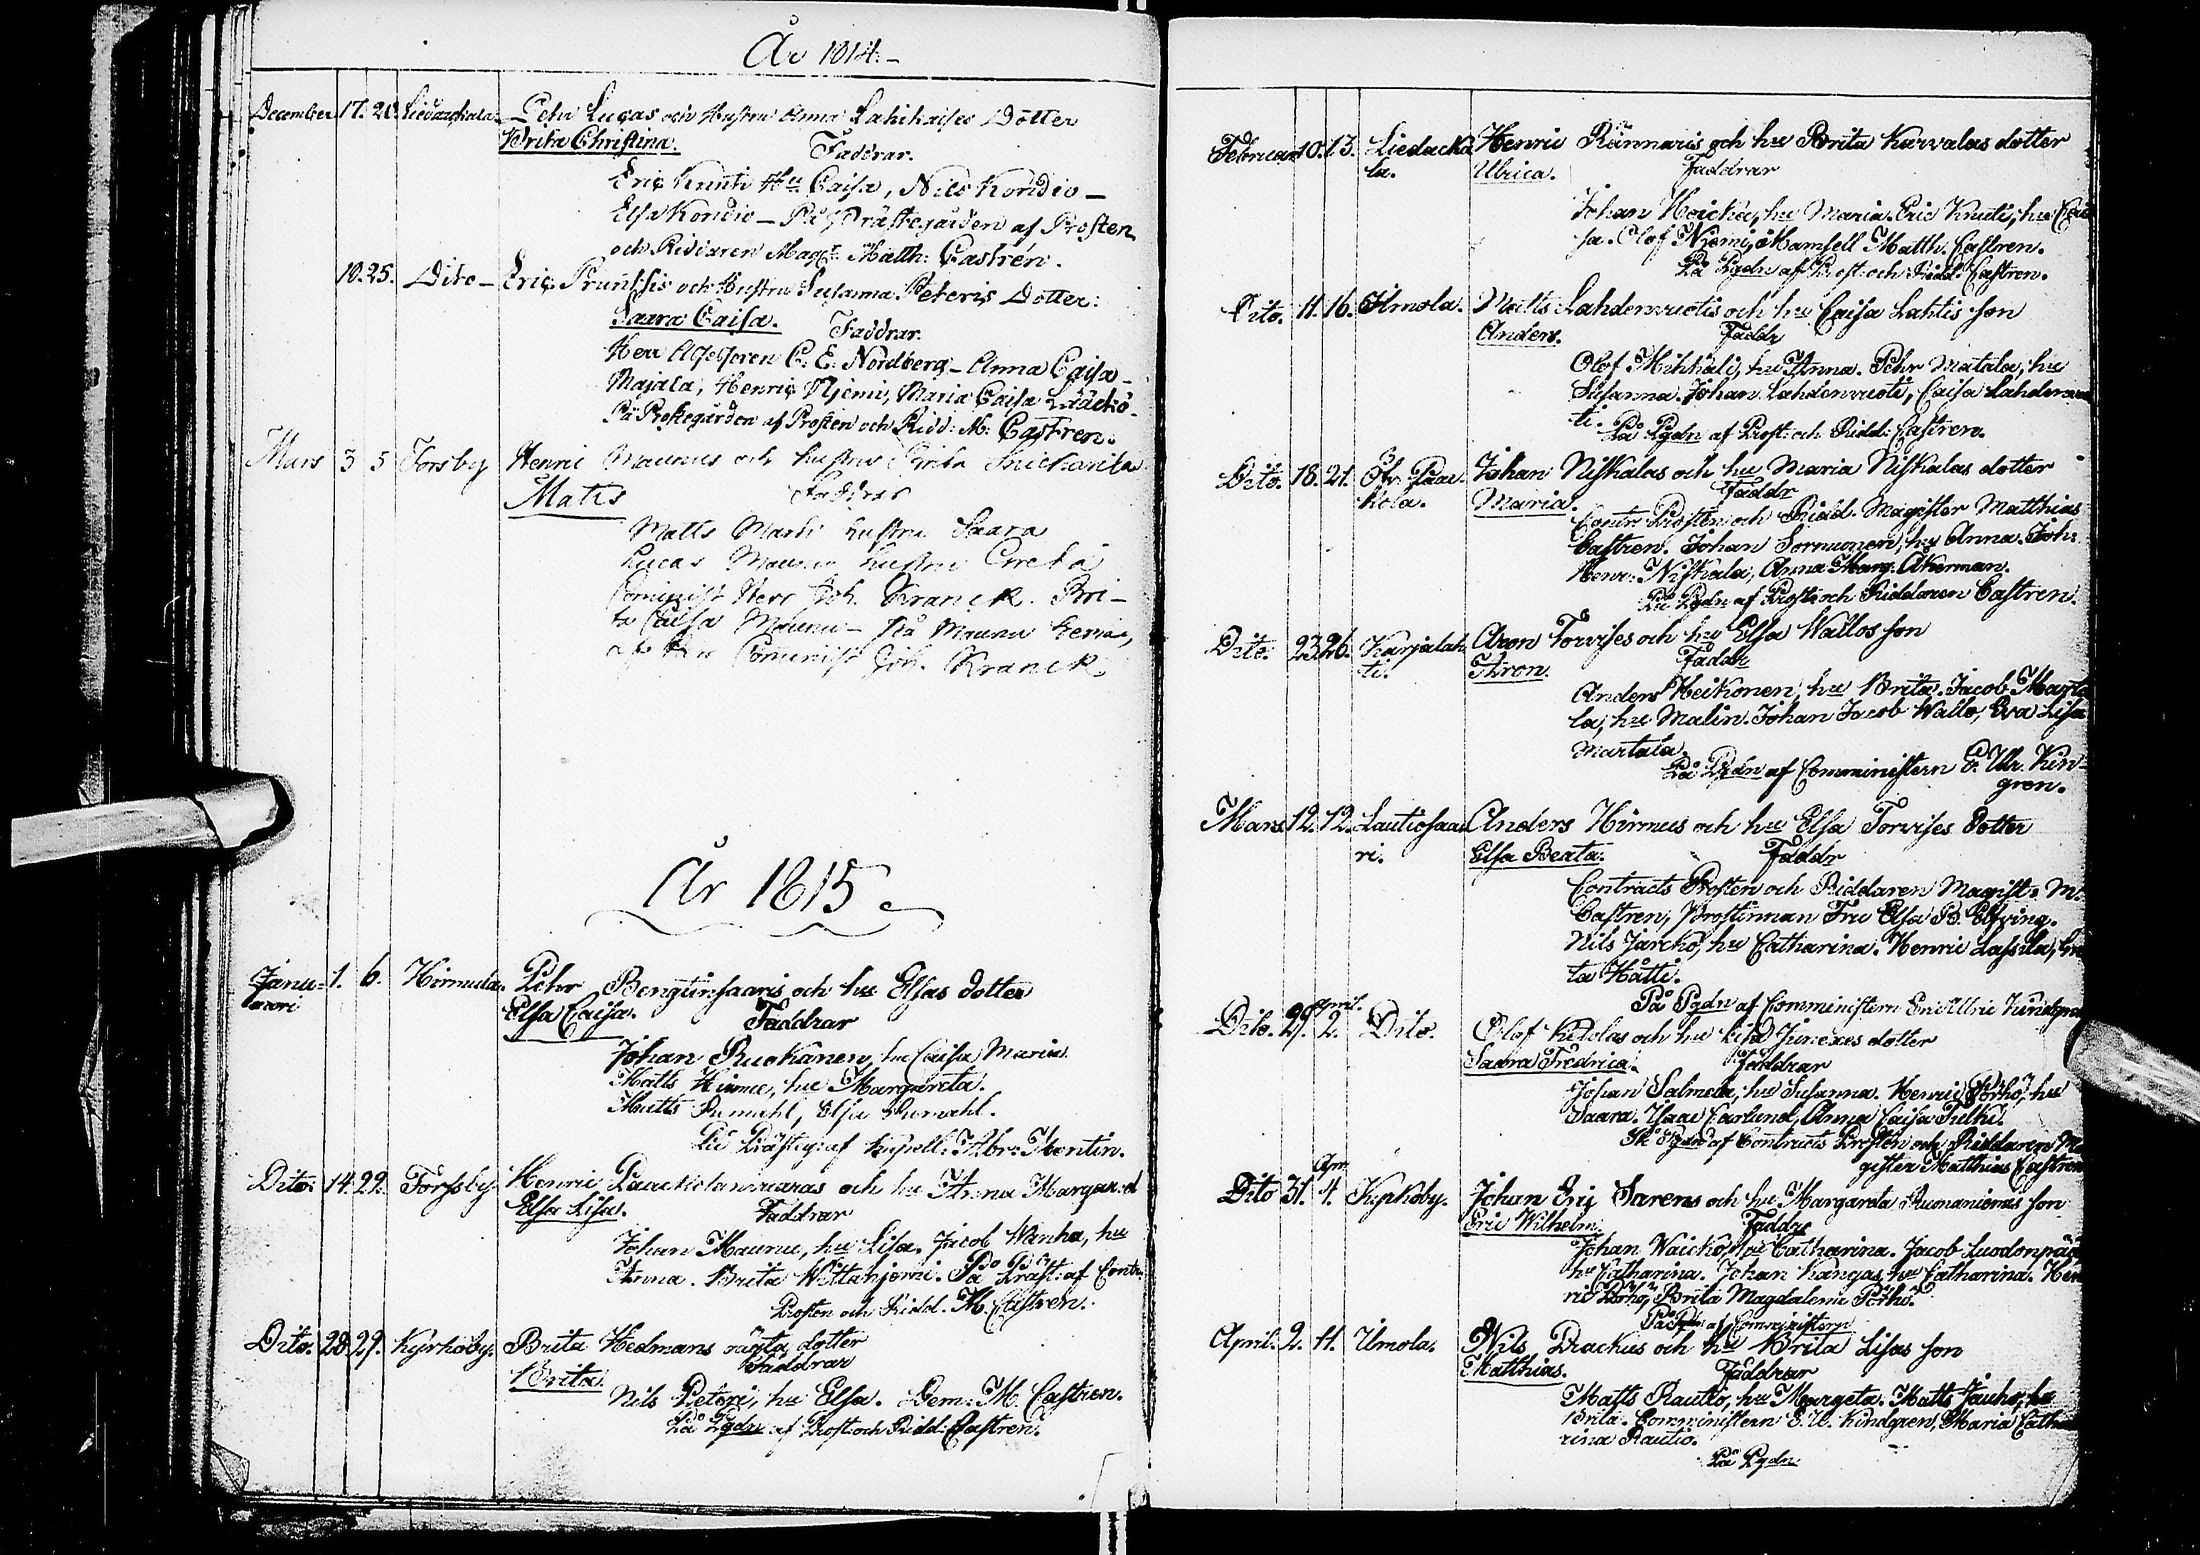 År 1814.-
December 17. 20. Liedackala. Pehr Lucas och Hustru Anna Lahihaises Dotter
Brita Christina. Faddrar.
Eric Knuuti Hu Caisa, Nils Kordio –
Elsa Kordio – På Prästegården af Prosten
och Riddaren Mag: Matth: Castrén.
10. 25. Dito – Eric Pruntsis och Hustru Susanna Peteris Dotter:
Saara Caisa. Faddrar.
Herr Assessoren C. E. Nordberg – Anna Caisa –
Majala, Henric Njemi, Maria Caisa
På Prostegården af Prosten och Ridd: M: Castren.
Mars 3 5 Forsby Henric Maunus och hustrus Greta
Mats Faddrar
Matts hustru Saara
Lucas Maunu hustru Greta
Cominist Herr Joh. Kranck. Bri-
ta Caisa Maunu – På Maunu
af Cominist Joh. Kranck
År 1815
Janu- 1. 6. Hirmula. Pehr Bengtinsaaris och hu Elsas dotter
uari Elsa Caisa. Faddrar
Johan Ruokanen, hu Caisa Maria.
Matts Hirmu, hu Margareta.
Matts Rumahl, Elsa Rumahl.
På Prästeg: af Kapell: Abr: Montin.
Dito. 14. 22. Forssby. Henric Paackolanvaaras och hu Anna Margar: d
Elsa Lisa. Faddrar
Johan Maunu, hu Lisa. Jacob Wanha, hu
Anna. Brita Wittaniemi. På Präst: af Contr:
Prosten och Ridd. M. Castren.
Dito. 28. 29. Kyrkoby. Brita Hedmans oägta dotter
Brita. Faddrar
Nils Peteri, hu Elsa. Dem: M. Castren.
På Pgdn af Prost: och Ridd: Castren.
Februari 10. 13. Liedacka- Henric Rännaris och hu Brita Karvalas dotter
la. Ulrica. Faddrar
Johan Hoicka, hu Maria. Eric Knuti, hu Cai
sa. Olof Niemi, Mamsell Matth. Castren.
På Pgdn af Prost: och Ridd: Castren.
Dito. 11. 16. Ilmola. Matts Lahdenvuotis och hu Caisa Lahtis son
Anders. Faddr
Olof Mihkali, hu Anna. Pehr Matala, hu
Susanna. Johan Lahdenvuoti, Caisa Lahdenvuo
ti. På Pgdn af Prost: och Ridd: Castren.
Dito. 18. 21. Öfv: Paac- Johan Niskalas och hu Maria Niskalas dotter
kola. Maria. Faddr
Contr: Prosten och Ridd. Magister Matthias
Castren. Johan Sormunen, hu Anna. Joh:
Henr: Niskala, Anna Marg. Åkerman.
På Pgdn af Prost: och Riddaren Castren.
Dito. 23. 26. Karjalah- Aron Torvises och hu Elsa Wallos son
ti. Aron. Faddr
Anders Heikonen, hu Brita. Jacob Marta
la, hu Malin. Johan Jacob Wallo, Eva Lisa
Martala.
På Pgdn af Comministern E. Ulr. Kin-
gren.
Mars 12. 12. Lautiosaa- Anders Hirmus och hu Elsa Torvises dotter
ri. Elsa Beata. Faddr
Contracts Prosten och Riddaren Magist: M:
Castren, Prostinnan Fru Elsa B. Elfving.
Nils Jarcko, hu Catharina. Henric Lassila, Gre
ta Hätti.
På Pgdn af Comministern Eric Ulric Kindgren
Dito. 29. April. 2. Dito. Olof Kidolas och hu Lisa Junexes dotter
Saara Fredrica. Faddrar
Johan Salmela, hu Susanna. Henric Pörhö, hu
Saara. Isaac Earlund, Anna Caisa Pulki.
På Pgdn af Contracts Prosten och Riddaren Ma
gister Matthias Castren
Dito 31. Apr. 4. Kyrkoby. Johan Eric Sarens och hu Margareta Rumaniemis son
Eric Wilhelm. Faddr
Johan Waicko, hu Catharina. Jacob Luodonpää
hu Catharina. Johan Kangas, hu Catharina. Hen
ric Pörhö, Brita Magdalena Pörhö.
På Pgdn af Comministern
April. 2. 11. Ilmola. Nils Prackus och hu Brita Lisas son
Matthias. Faddrar
Matts Rautio, hu Margeta. Matts Jauho, hu
Brita. Comministern E. U. Kindgren, Maria Catha
rina Rautio.
På Pgdn